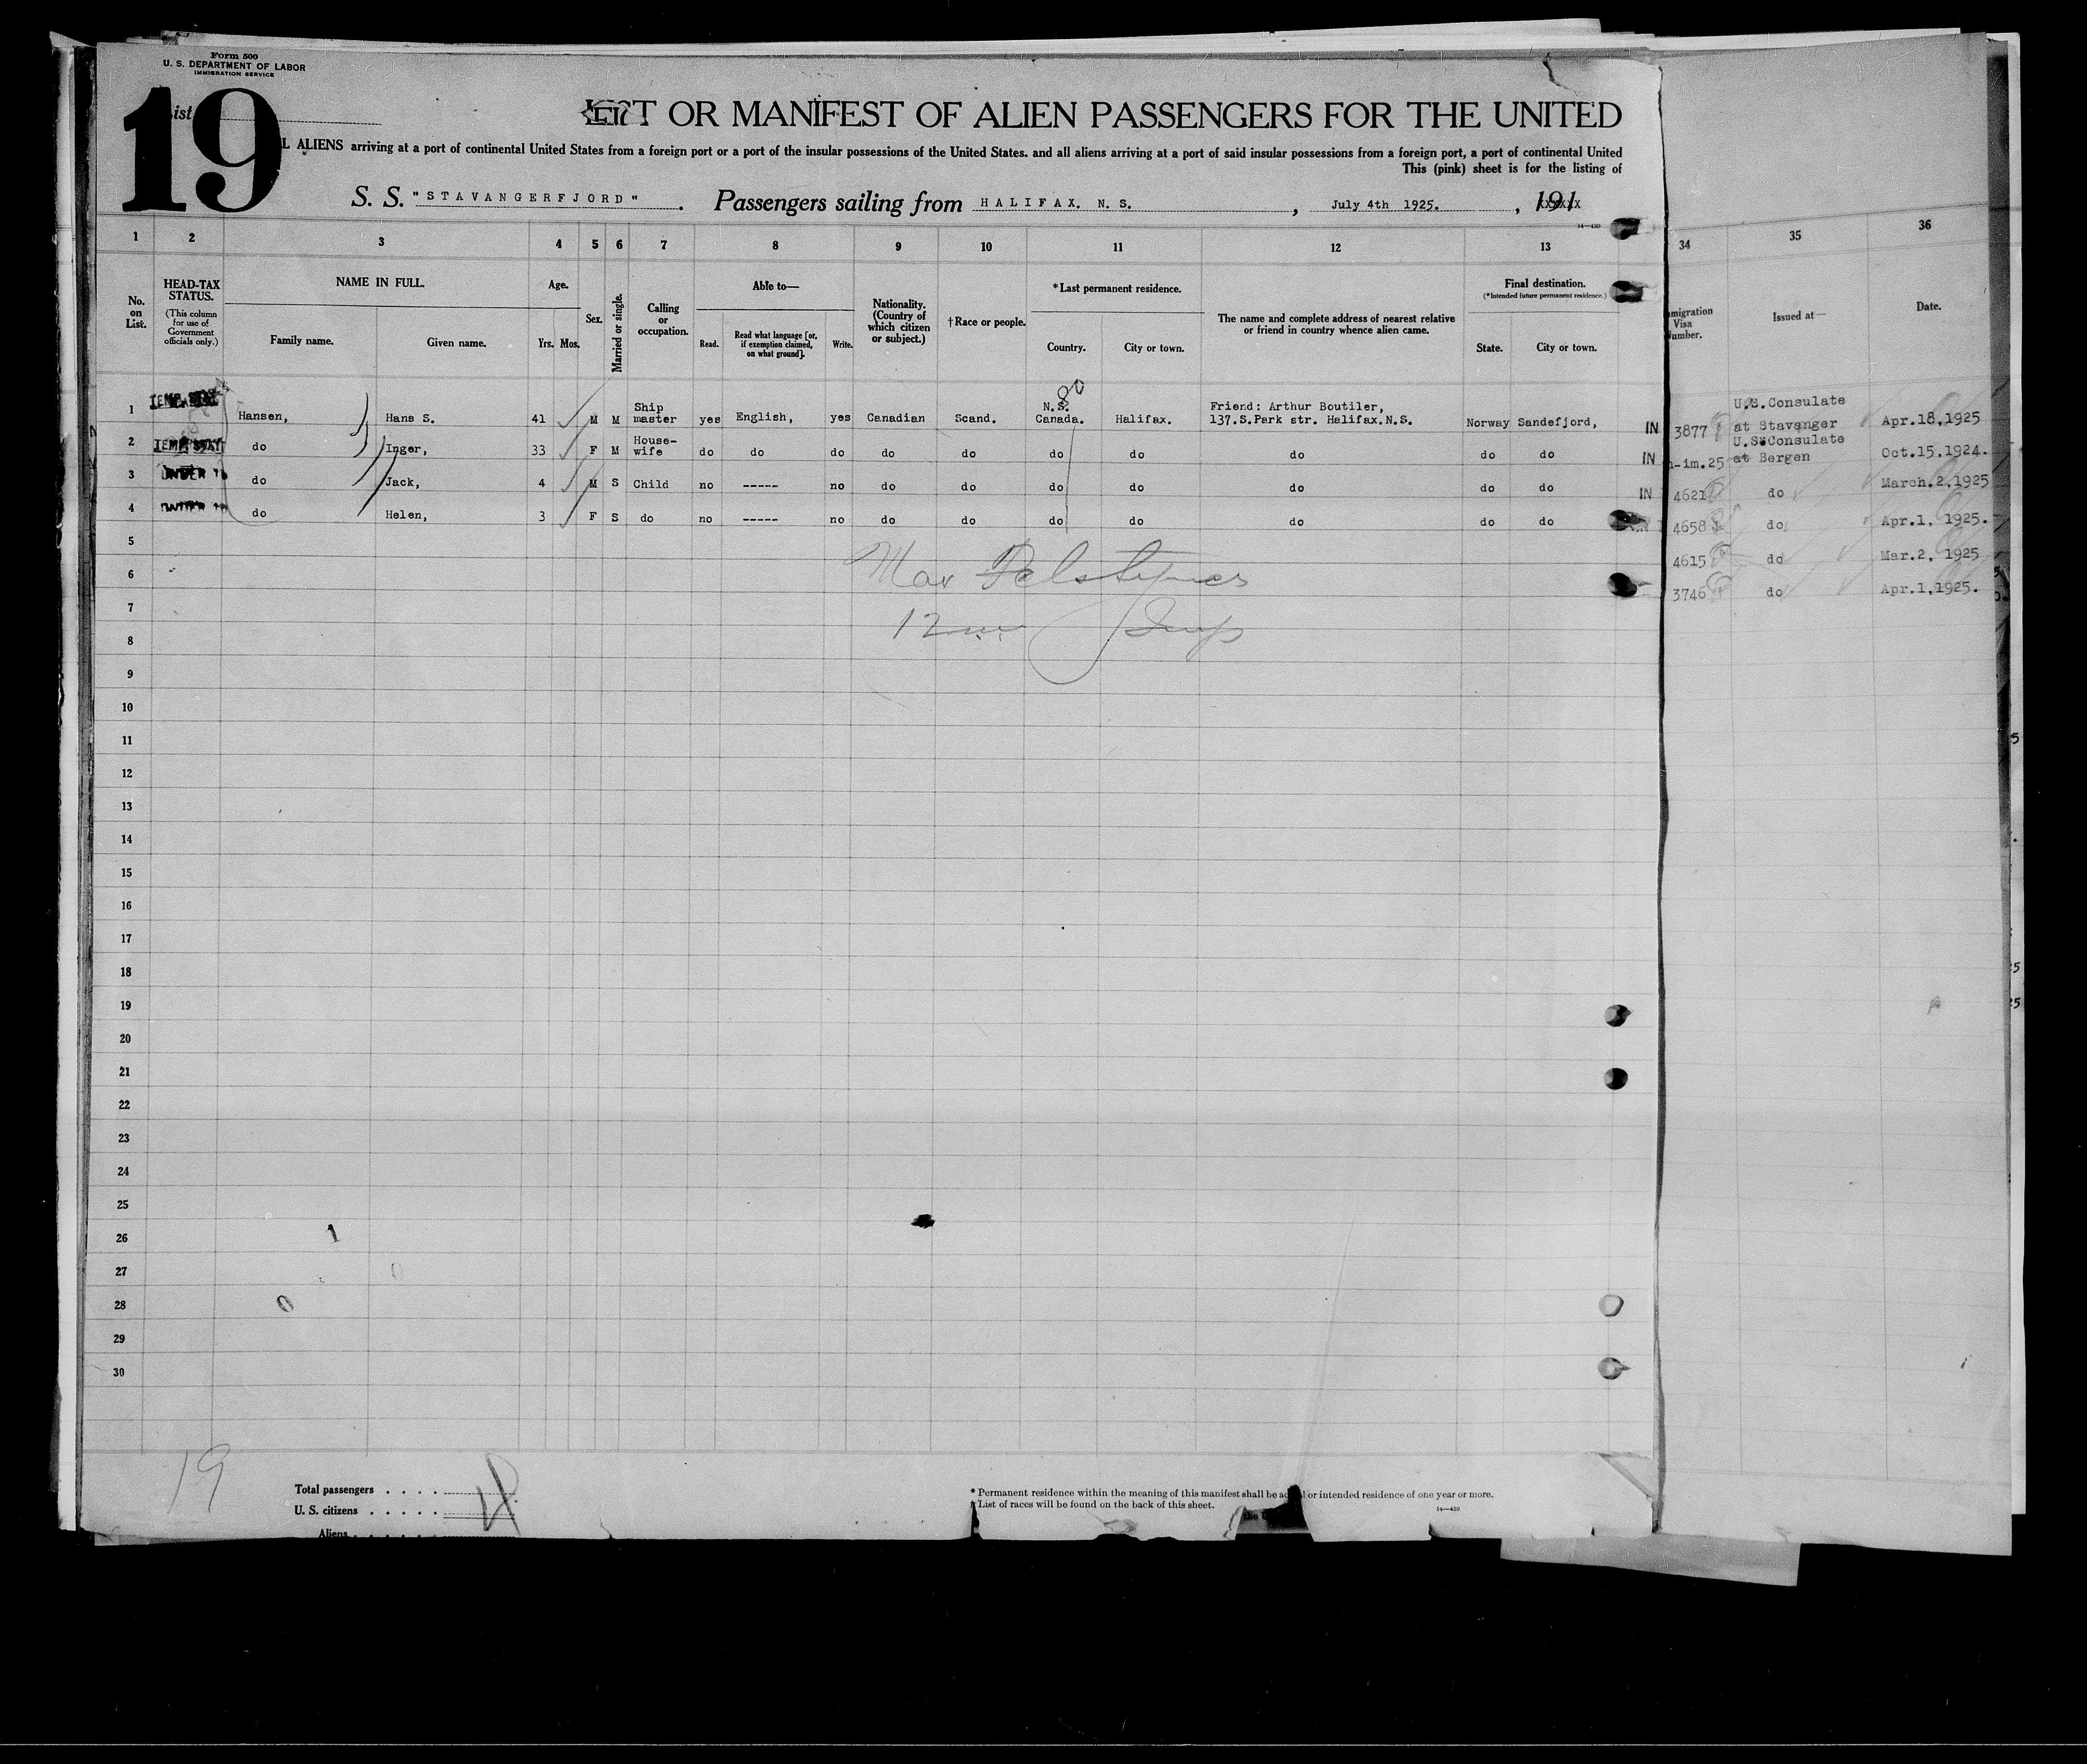 Form 500
U. S. DEPARTMENT OF LABOR
IMMIGRATION SERVICE
19
List
LIST OR MANIFEST OF ALIEN PASSENGERS FOR THE UNITED
L ALIENS arriving at a port of continental United States from a foreign port or a port of the insular possessions of the United States. and all aliens arriving at a port of said insular possessions from a foreign port, a port of continental United
This (pink) sheet is for the listing of
S. S. "STAVANGERFJORD". Passengers sailing from HALIFAX. N. S., July 4th 1925. , 191
14—430
1 2 3 4 5 6 7 8 9 10 11 12 13 34 35 36
No. on List.
HEAD-TAX STATUS.
(This column for use of Government officials only.)
NAME IN FULL.
Family name. Given name.
Age.
Yrs. Mos.
Sex.
Married or single.
Calling or occupation.
Able to—
Read. Read what language [or, if exemption claimed, on what ground]. Write.
Nationality. (Country of which citizen or subject.)
†Race or people.
*Last permanent residence.
Country. City or town.
The name and complete address of nearest relative or friend in country whence alien came.
Final destination.
(*Intended future permanent residence.)
State. City or town.
migration Visa Number.
Issued at—
Date.
1 Hansen, Hans S. 41 M M Ship master yes English, yes Canadian Scand. N.S. Canada. Halifax. Friend: Arthur Boutilier, 137.S.Park str. Halifax.N.S. Norway Sandefjord, IN 3877 U.S.Consulate at Stavanger Apr.18,1925
2 do Inger, 33 F M House-wife do do do do do do do do do do IN n-im.25 U.S.Consulate at Bergen Oct.15,1924.
3 UNDER do Jack, 4 M S Child no ----- no do do do do do do do IN 4621 do March.2,1925
4 do Helen, 3 F S do no ----- no do do do do do do do 4658 do Apr.1, 1925.
5 4615 do Mar.2, 1925
6 3746 do Apr.1,1925.
7
8
9
10
11
12
13
14
15
16
17
18
19
20
21
22
23
24
25
26
27
28
29
30
19
Total passengers . . . .
U. S. citizens . . . . .
Aliens . . . . . .
* Permanent residence within the meaning of this manifest shall be actual or intended residence of one year or more.
† List of races will be found on the back of this sheet.
14—430